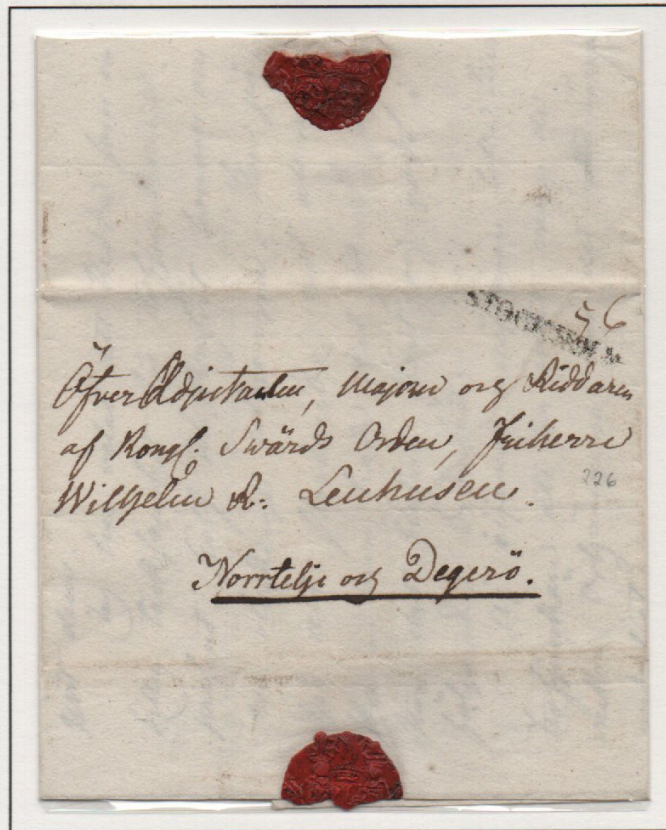 STOCKHOLM
56
ÖfverAdjutanten, Majoren och Riddaren
af Kongl. Swärds Orden, Friherre
Wilhelm R: Lenhusen.
226
Norrtelje och Degerö.